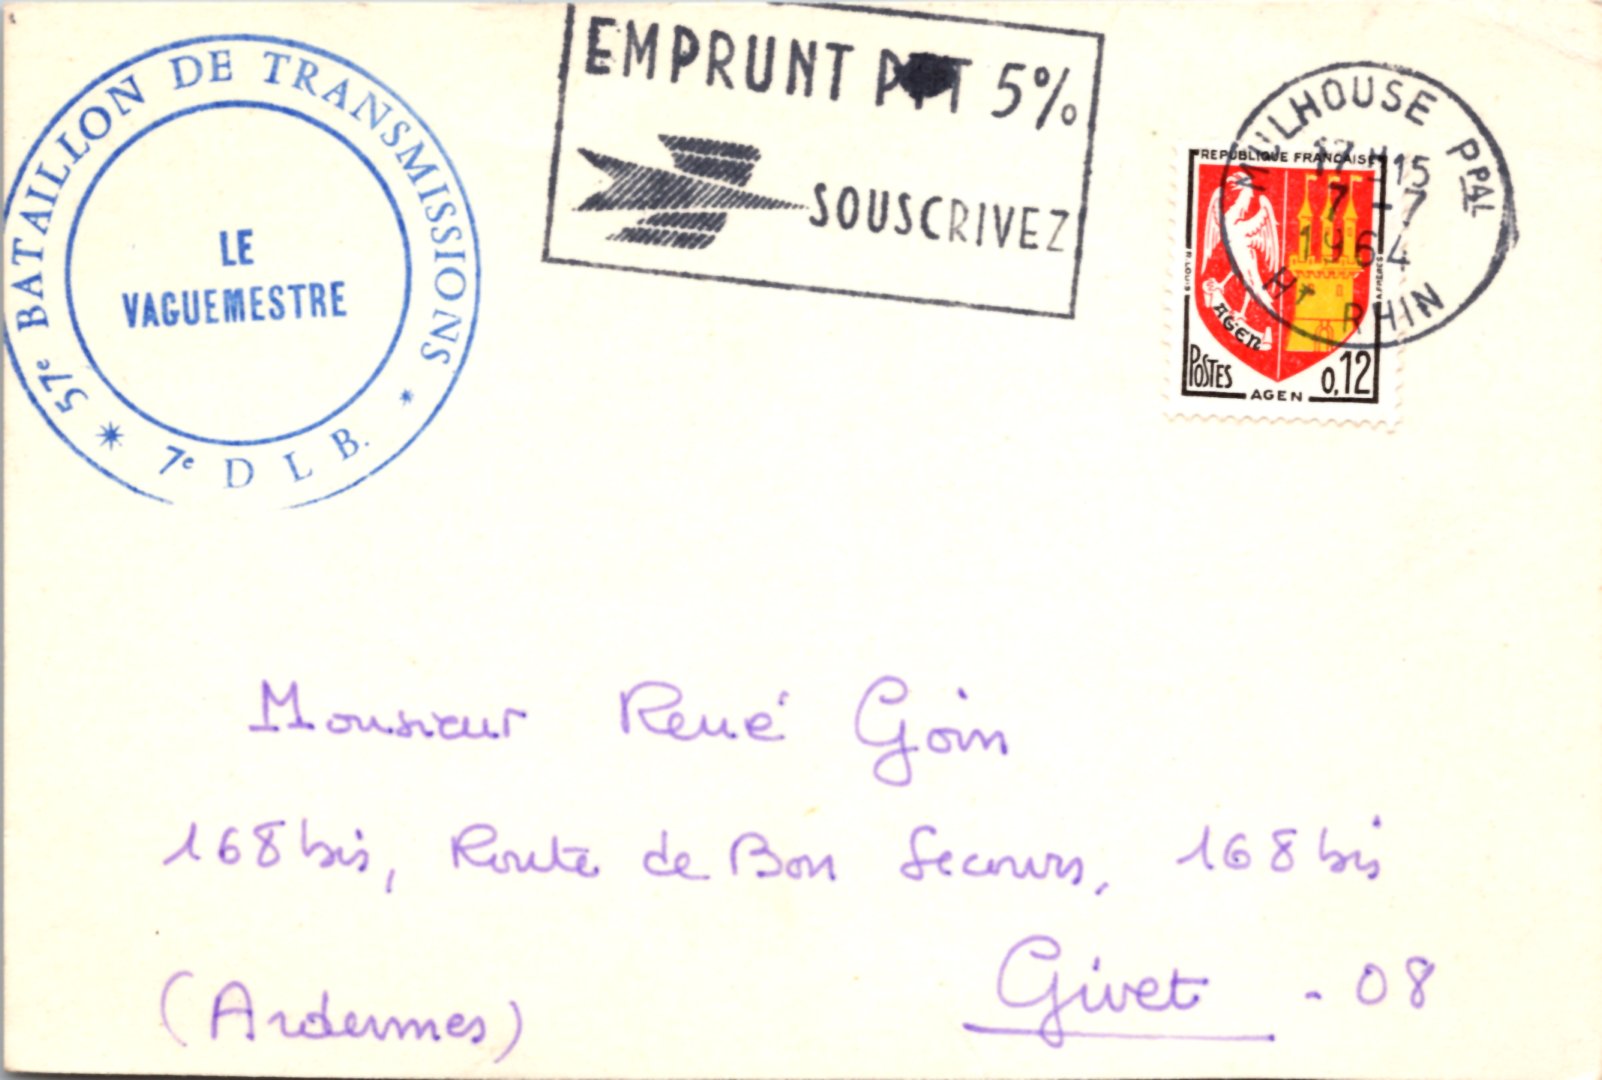 57e BATAILLON DE TRANSMISSIONS
* 7e D L B. *
LE
VAGUEMESTRE
EMPRUNT PTT 5%
SOUSCRIVEZ
MULHOUSE PPAL
17H15
7-7
1964
HT RHIN
REPUBLIQUE FRANÇAISE
AGEN
POSTES
0,12
AGEN
Monsieur René Goin
168 bis, Route de Bon Secours, 168 bis
Givet - 08
(Ardennes)